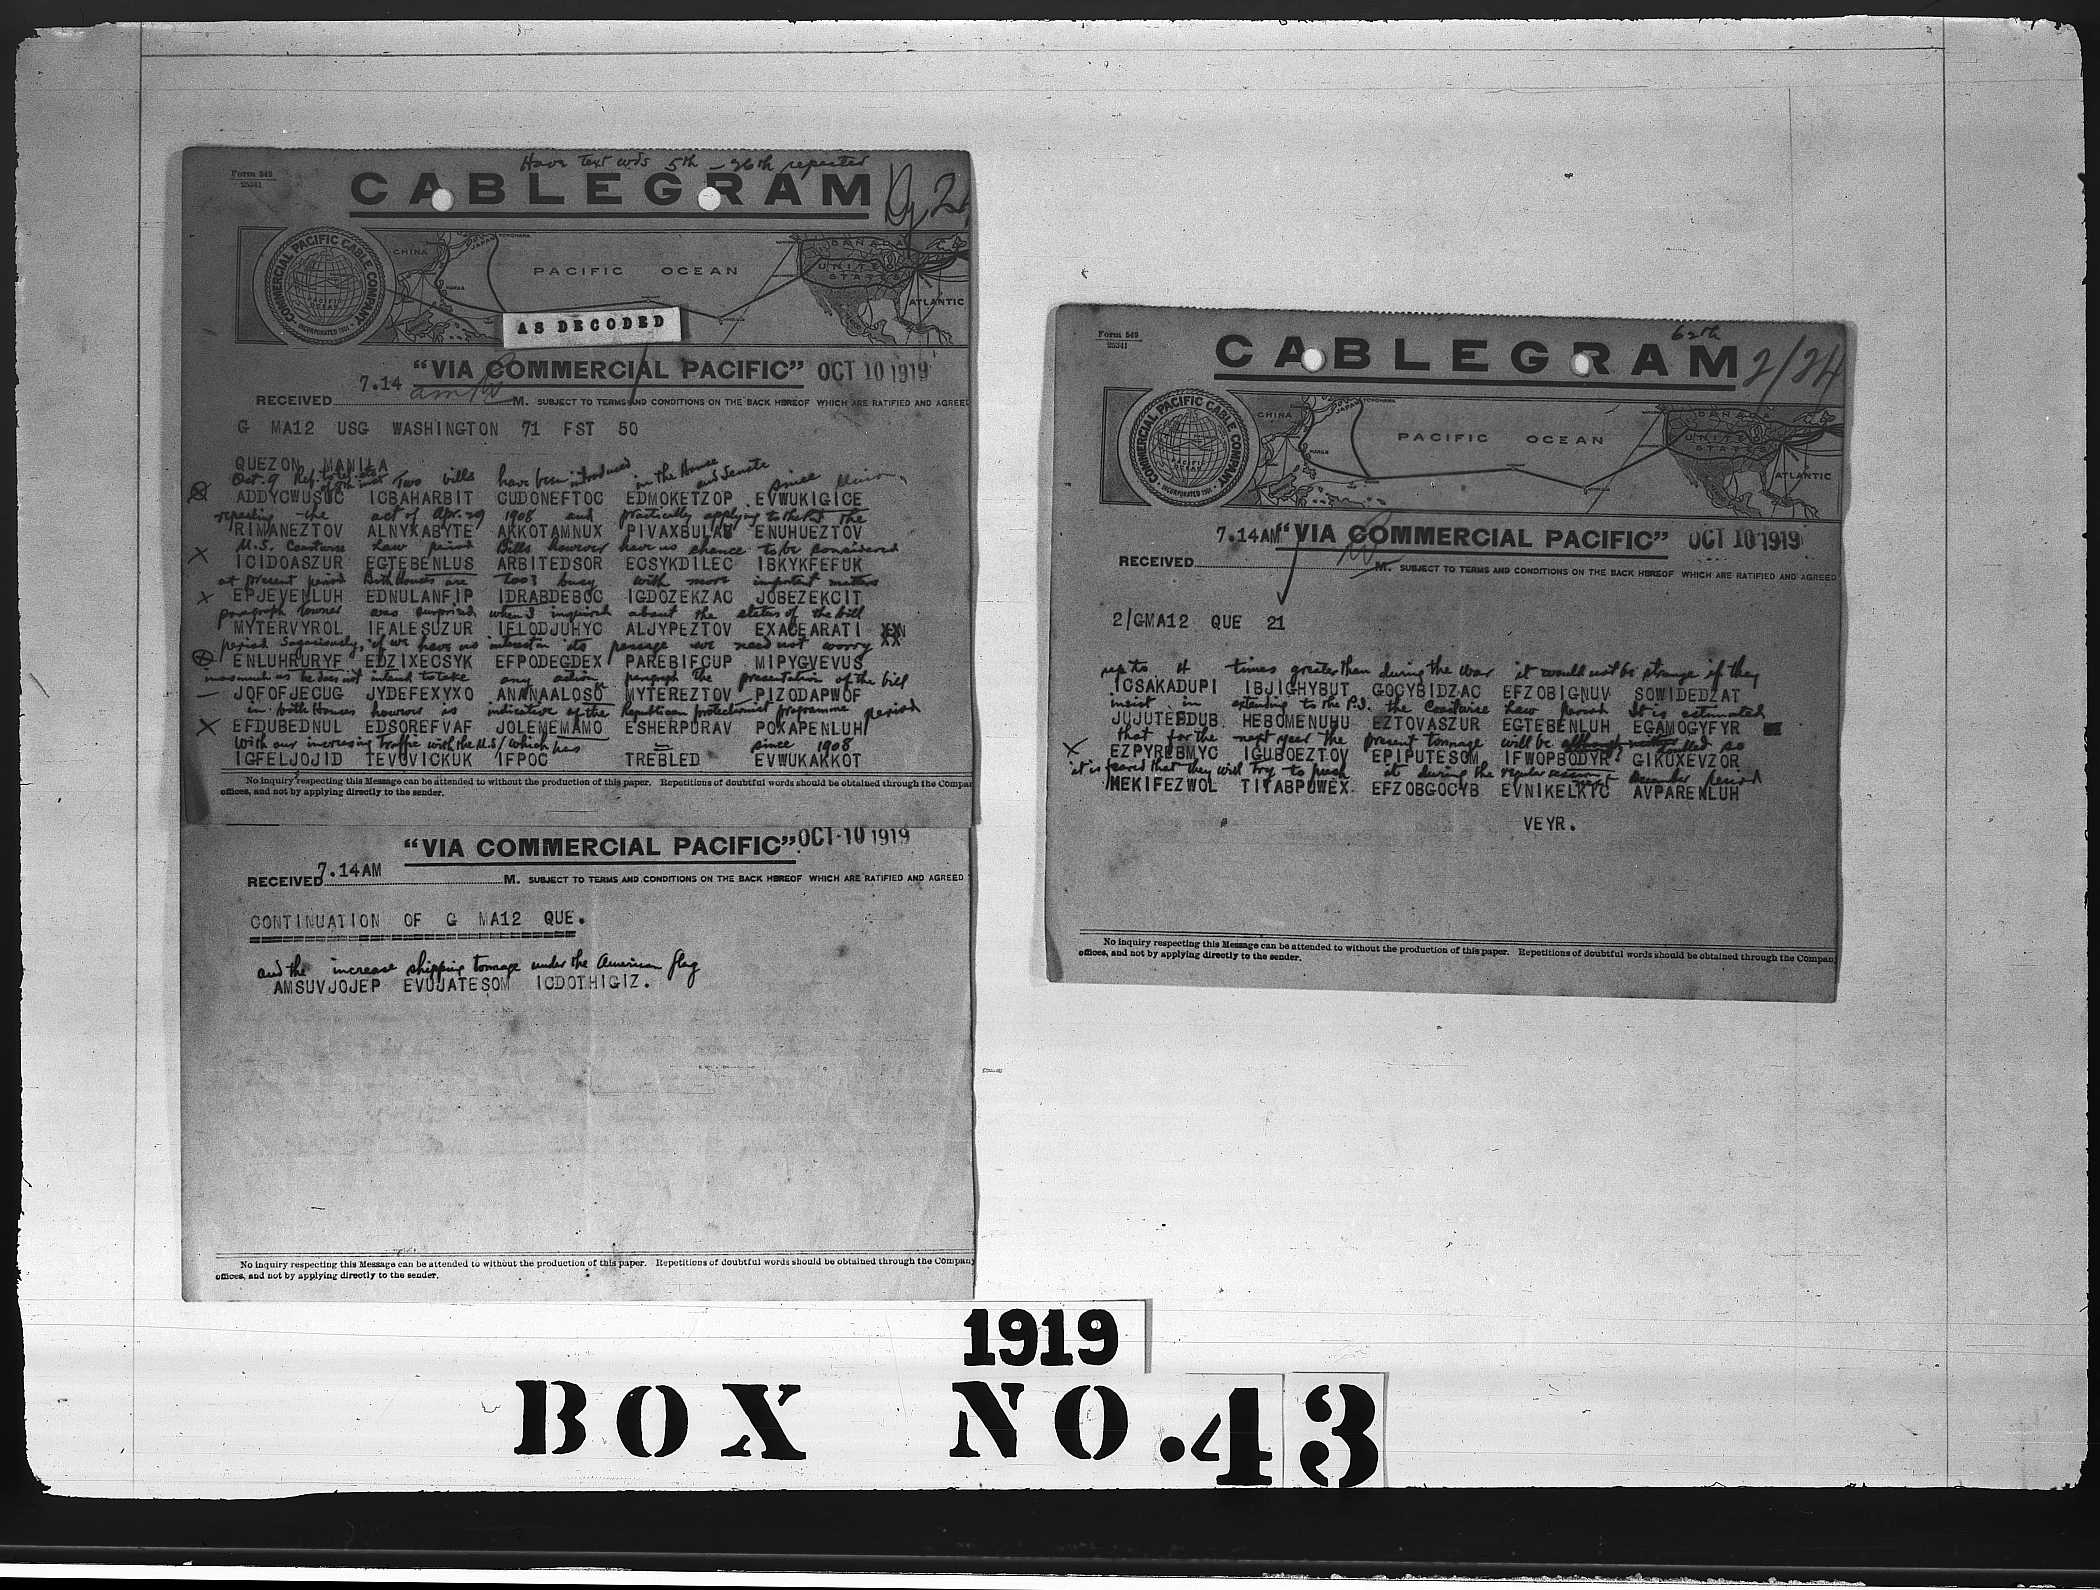 Have Text wds 5th - 26th repeated
Form 549
25341
CABLEGRAM
COMMERCIAL PACIFIC CABLE COMPANY
INCORPORATED 1901
CHINA
JAPAN
YOKOHAMA
MANILA
PACIFIC OCEAN
CANADA
UNITED STATES
ATLANTIC
AS DECODED
"VIA COMMERCIAL PACIFIC" OCT 10 1919
RECEIVED 7.14 am M. SUBJECT TO TERMS AND CONDITIONS ON THE BACK HEREOF WHICH ARE RATIFIED AND AGREED
G MA12 USG WASHINGTON 71 FST 50
QUEZON MANILA
Oct. 9 Two bills have been introduced in the House and Senate since
ADDYCWUSUC ICBAHARBIT CUDCNEFTOC EDMOKETZOP EVWUKIGICE
repealing the act of Apr. 29 1908 and practically applying to the P.I. The
RIMANEZTOV ALNYXABYTE AKKOTAMNUX PIVAXBULAB ENUHUEZTOV
U.S. Coastwise Law period Bills however have no chance to be considered
ICIDOASZUR EGTEBENLUS ARBITEDSOR ECSYKDILEC IBKYKFEFUK
at present period Both Houses are too busy with more important matters
EPJEVENLUH EDNULANFIP IDRABDEBOC IGDOZEKZAC JOBEZEKCIT
paragraph Towner was surprised when I inquired about the status of the bill
MYTERVYROL IFALESUZUR IFLODJUHYC ALJYPEZTOV EXACEARATI
period Sagaciously, if we have no interest in its passage we need not worry
ENLUHRURYF EDZIXECSYK EFPODEGDEX PAREBIFCUP MIPYGVEVUS
inasmuch as he does not intend to take any action paragraph the presentation of the bill
JOFOFJECUG JYDEFEXYXO ANANAALOSO MYTEREZTOV PIZODAPWOF
in both Houses however is indicative of the Republican protectionist programme period
EFDUBEDNUL EDSOREFVAF JOLEMEMAMO ESHERPURAV POXAPENLUH
With our increasing traffic with the U.S. which has since 1908
IGFELJOJID TEVUVICKUK IFPOC TREBLED EVWUKAKKOT
No inquiry respecting this Message can be attended to without the production of this paper. Repetitions of doubtful words should be obtained through the Compan
offices, and not by applying directly to the sender.
"VIA COMMERCIAL PACIFIC" OCT 10 1919
RECEIVED 7.14AM M. SUBJECT TO TERMS AND CONDITIONS ON THE BACK HEREOF WHICH ARE RATIFIED AND AGREED
CONTINUATION OF G MA12 QUE.
and the increase shipping tonnage under the American flag
AMSUVJOJEP EVUJATESOM ICDOTHIGIZ.
No inquiry respecting this Message can be attended to without the production of this paper. Repetitions of doubtful words should be obtained through the Company
offices, and not by applying directly to the sender.
62th
Form 549
25341
CABLEGRAM
2/24
COMMERCIAL PACIFIC CABLE COMPANY
INCORPORATED 1901
CHINA
JAPAN
YOKOHAMA
MANILA
PACIFIC OCEAN
CANADA
UNITED STATES
ATLANTIC
7.14AM "VIA COMMERCIAL PACIFIC" OCT 10 1919
RECEIVED M. SUBJECT TO TERMS AND CONDITIONS ON THE BACK HEREOF WHICH ARE RATIFIED AND AGREED
2/GMA12 QUE 21
up to times greater than during the War it would not be strange if they
ICSAKADUPI IBJIGHYBUT GOCYBIDZAC EFZOBIGNUV SOWIDEDZAT
insist in extending to the P.I. the Coastwise Law period It is estimated
JUJUTEFDUB HEBOMENUHU EZTOVASZUR EGTEBENLUH EGAMOGYFYR
that for the next year the present tonnage will be handled so
EZPYREBMYC IGUBOEZTOV EPIPUTESOM IFWOPBODYR GIKUXEVZOR
it is feared that they will try to push it during the regular session December period
MEKIFEZWOL TITABPUWEX EFZOBGOCYB EVNIKELKYC AVPARENLUH
VEYR.
No inquiry respecting this Message can be attended to without the production of this paper. Repetitions of doubtful words should be obtained through the Company
offices, and not by applying directly to the sender.
1919
BOX NO. 43